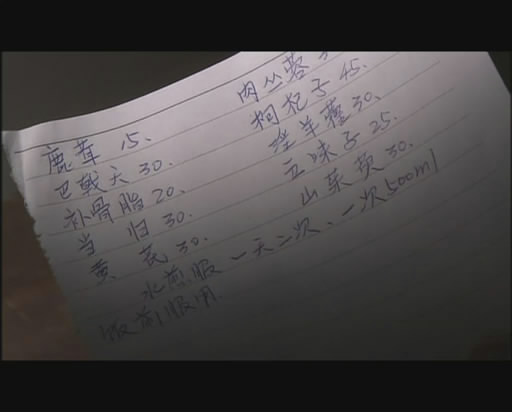 鹿茸 15、 肉丛蓉
巴戟天 30. 枸杞子 45.
补骨脂 20. 淫羊藿 30、
当归 30. 五味子 25.
黄芪 30. 山茱萸 30.
水煎服 一天二次、一次500ml
饭前服用.